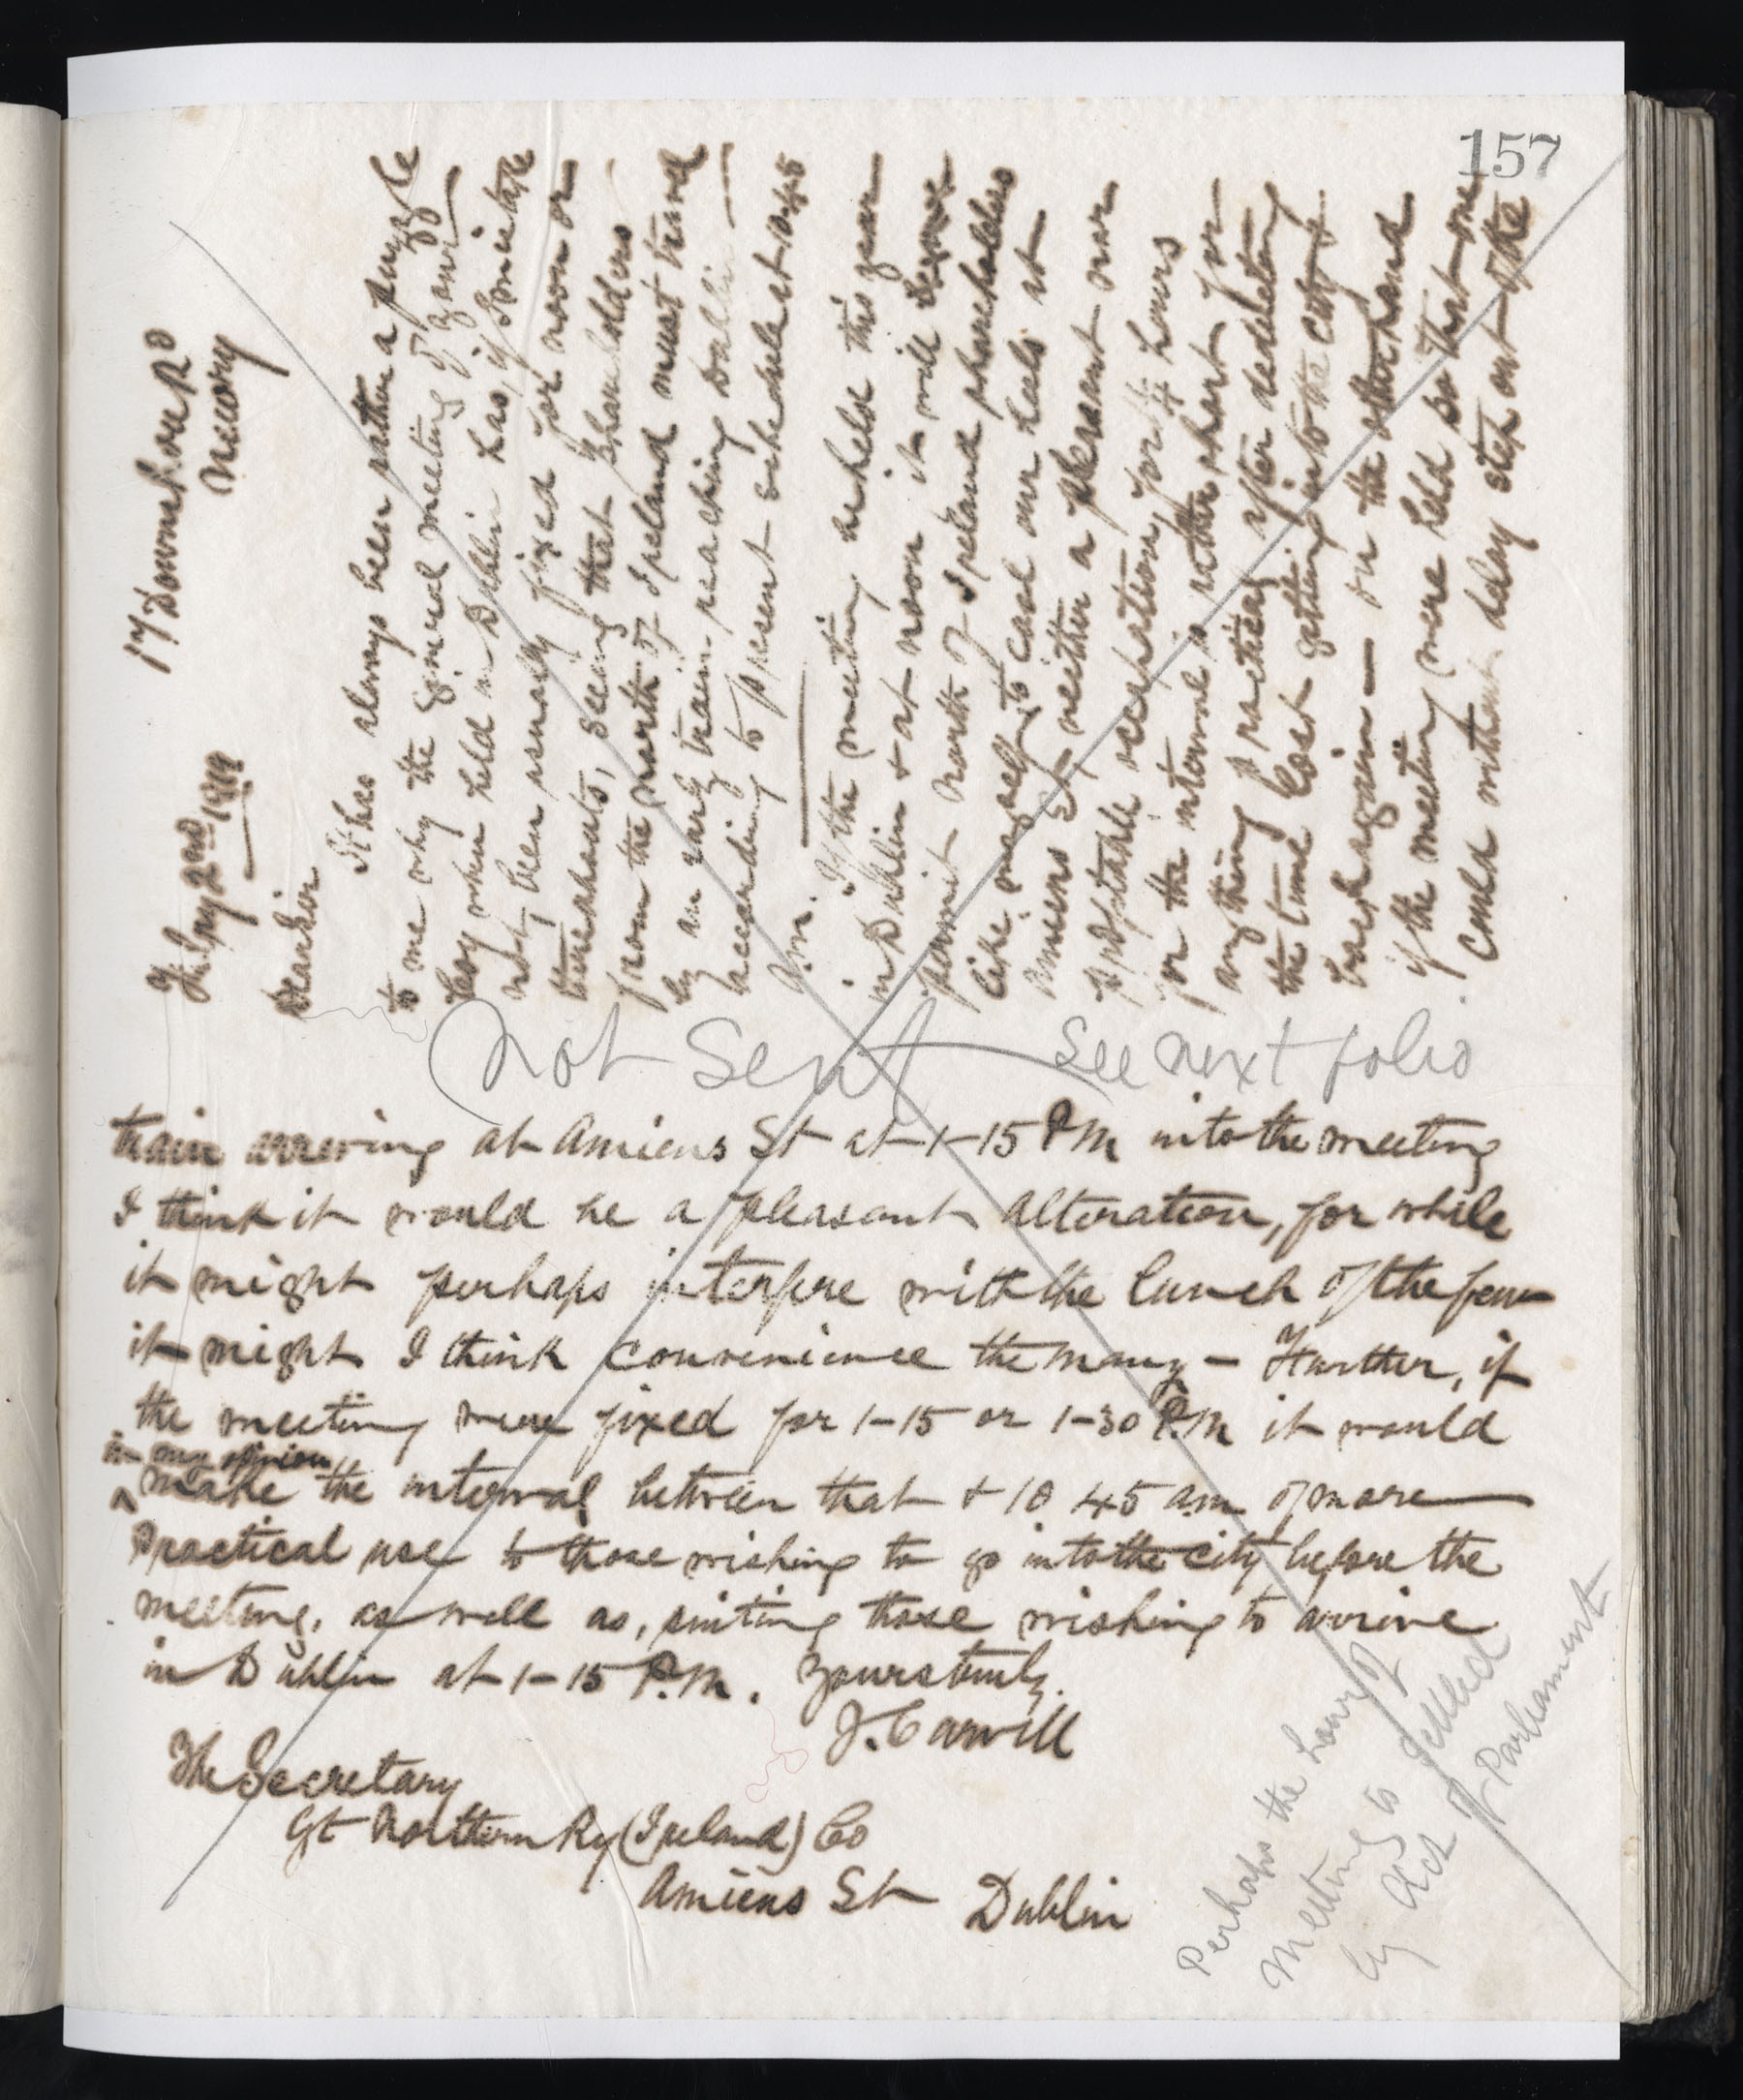 157
17 Downshore Rd
Newry
Feby 2nd 1919
Dear Sir
It has always been rather a puzzle
to me why the general meeting of your
Coy when held in Dublin has, if I mistake
not, been usually fixed for noon or
thereabouts, seeing that Shareholders
from the north of Ireland must travel
by an early train reaching Dublin
according to present schedule at 10.45
a.m.
If the meeting be held this year
in Dublin & at noon it will
permit North of Ireland shareholders
like myself to cool our heels at
Amiens St neither a pleasant nor
profitable occupation, for 1¼ hours
for the interval is rather short for
anything practical after deducting
the time lost getting into the city &
back again — on the other hand
if the meeting were held so that one
could without delay step out of the
Not Sent — See next folio
train arriving at Amiens St at 1-15 PM into the meeting
I think it would be a pleasant alteration, for while
it might perhaps interfere with the lunch of the few
it might I think convenience the many - Further, if
the meeting were fixed for 1-15 or 1-30 P.M it would
in my opinion
^ make the interval between that & 10 45 am of more
Practical use to those wishing to go into the city before the
meeting, as well as, suiting those wishing to arrive
in Dublin at 1-15 P.M. Yours truly.
J. Carvill
The Secretary
Gt Northern Ry (Ireland) Co
Amiens St Dublin
Perhaps the hour of
Meeting is settled
by Act of Parliament